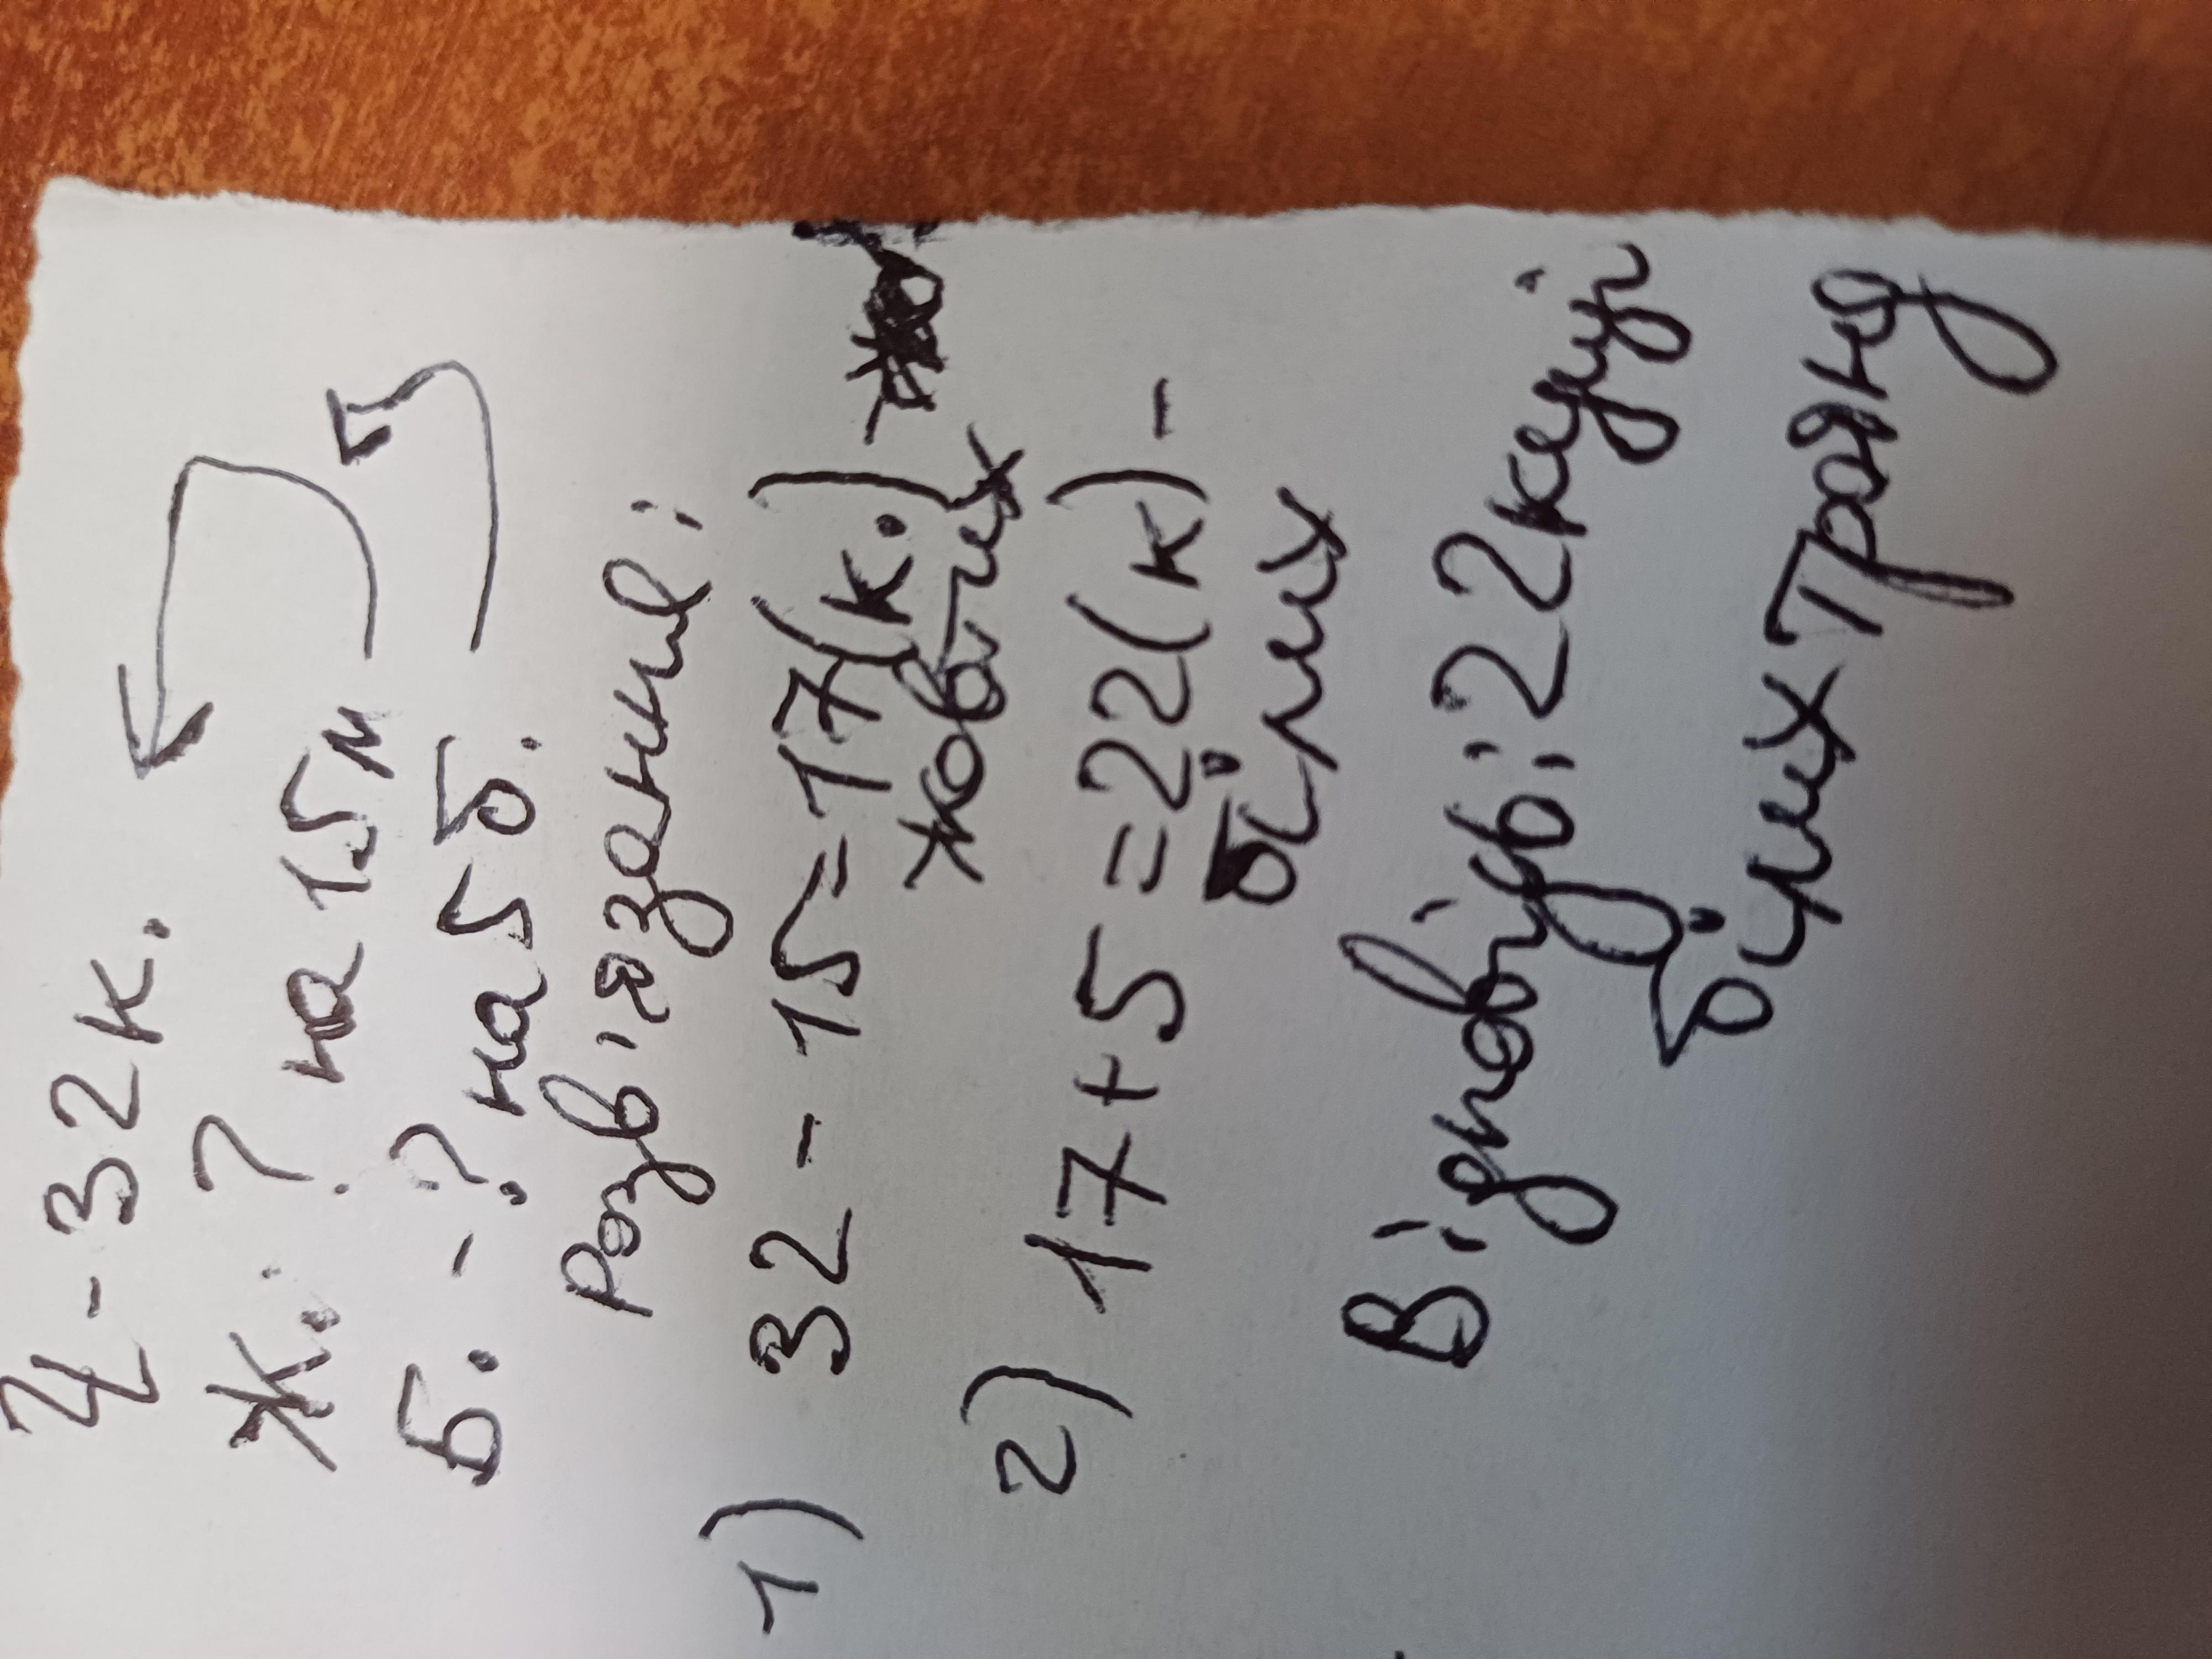 Ч - 32 к.
Ж. ? на 15 м
Б. - ? на 5 б.
Розв'язання:
1) 32 - 15 = 17 (к.) -
жовтих
2) 17 + 5 = 22 (к) -
білих
Відповідь: 22 кущі
білих троянд